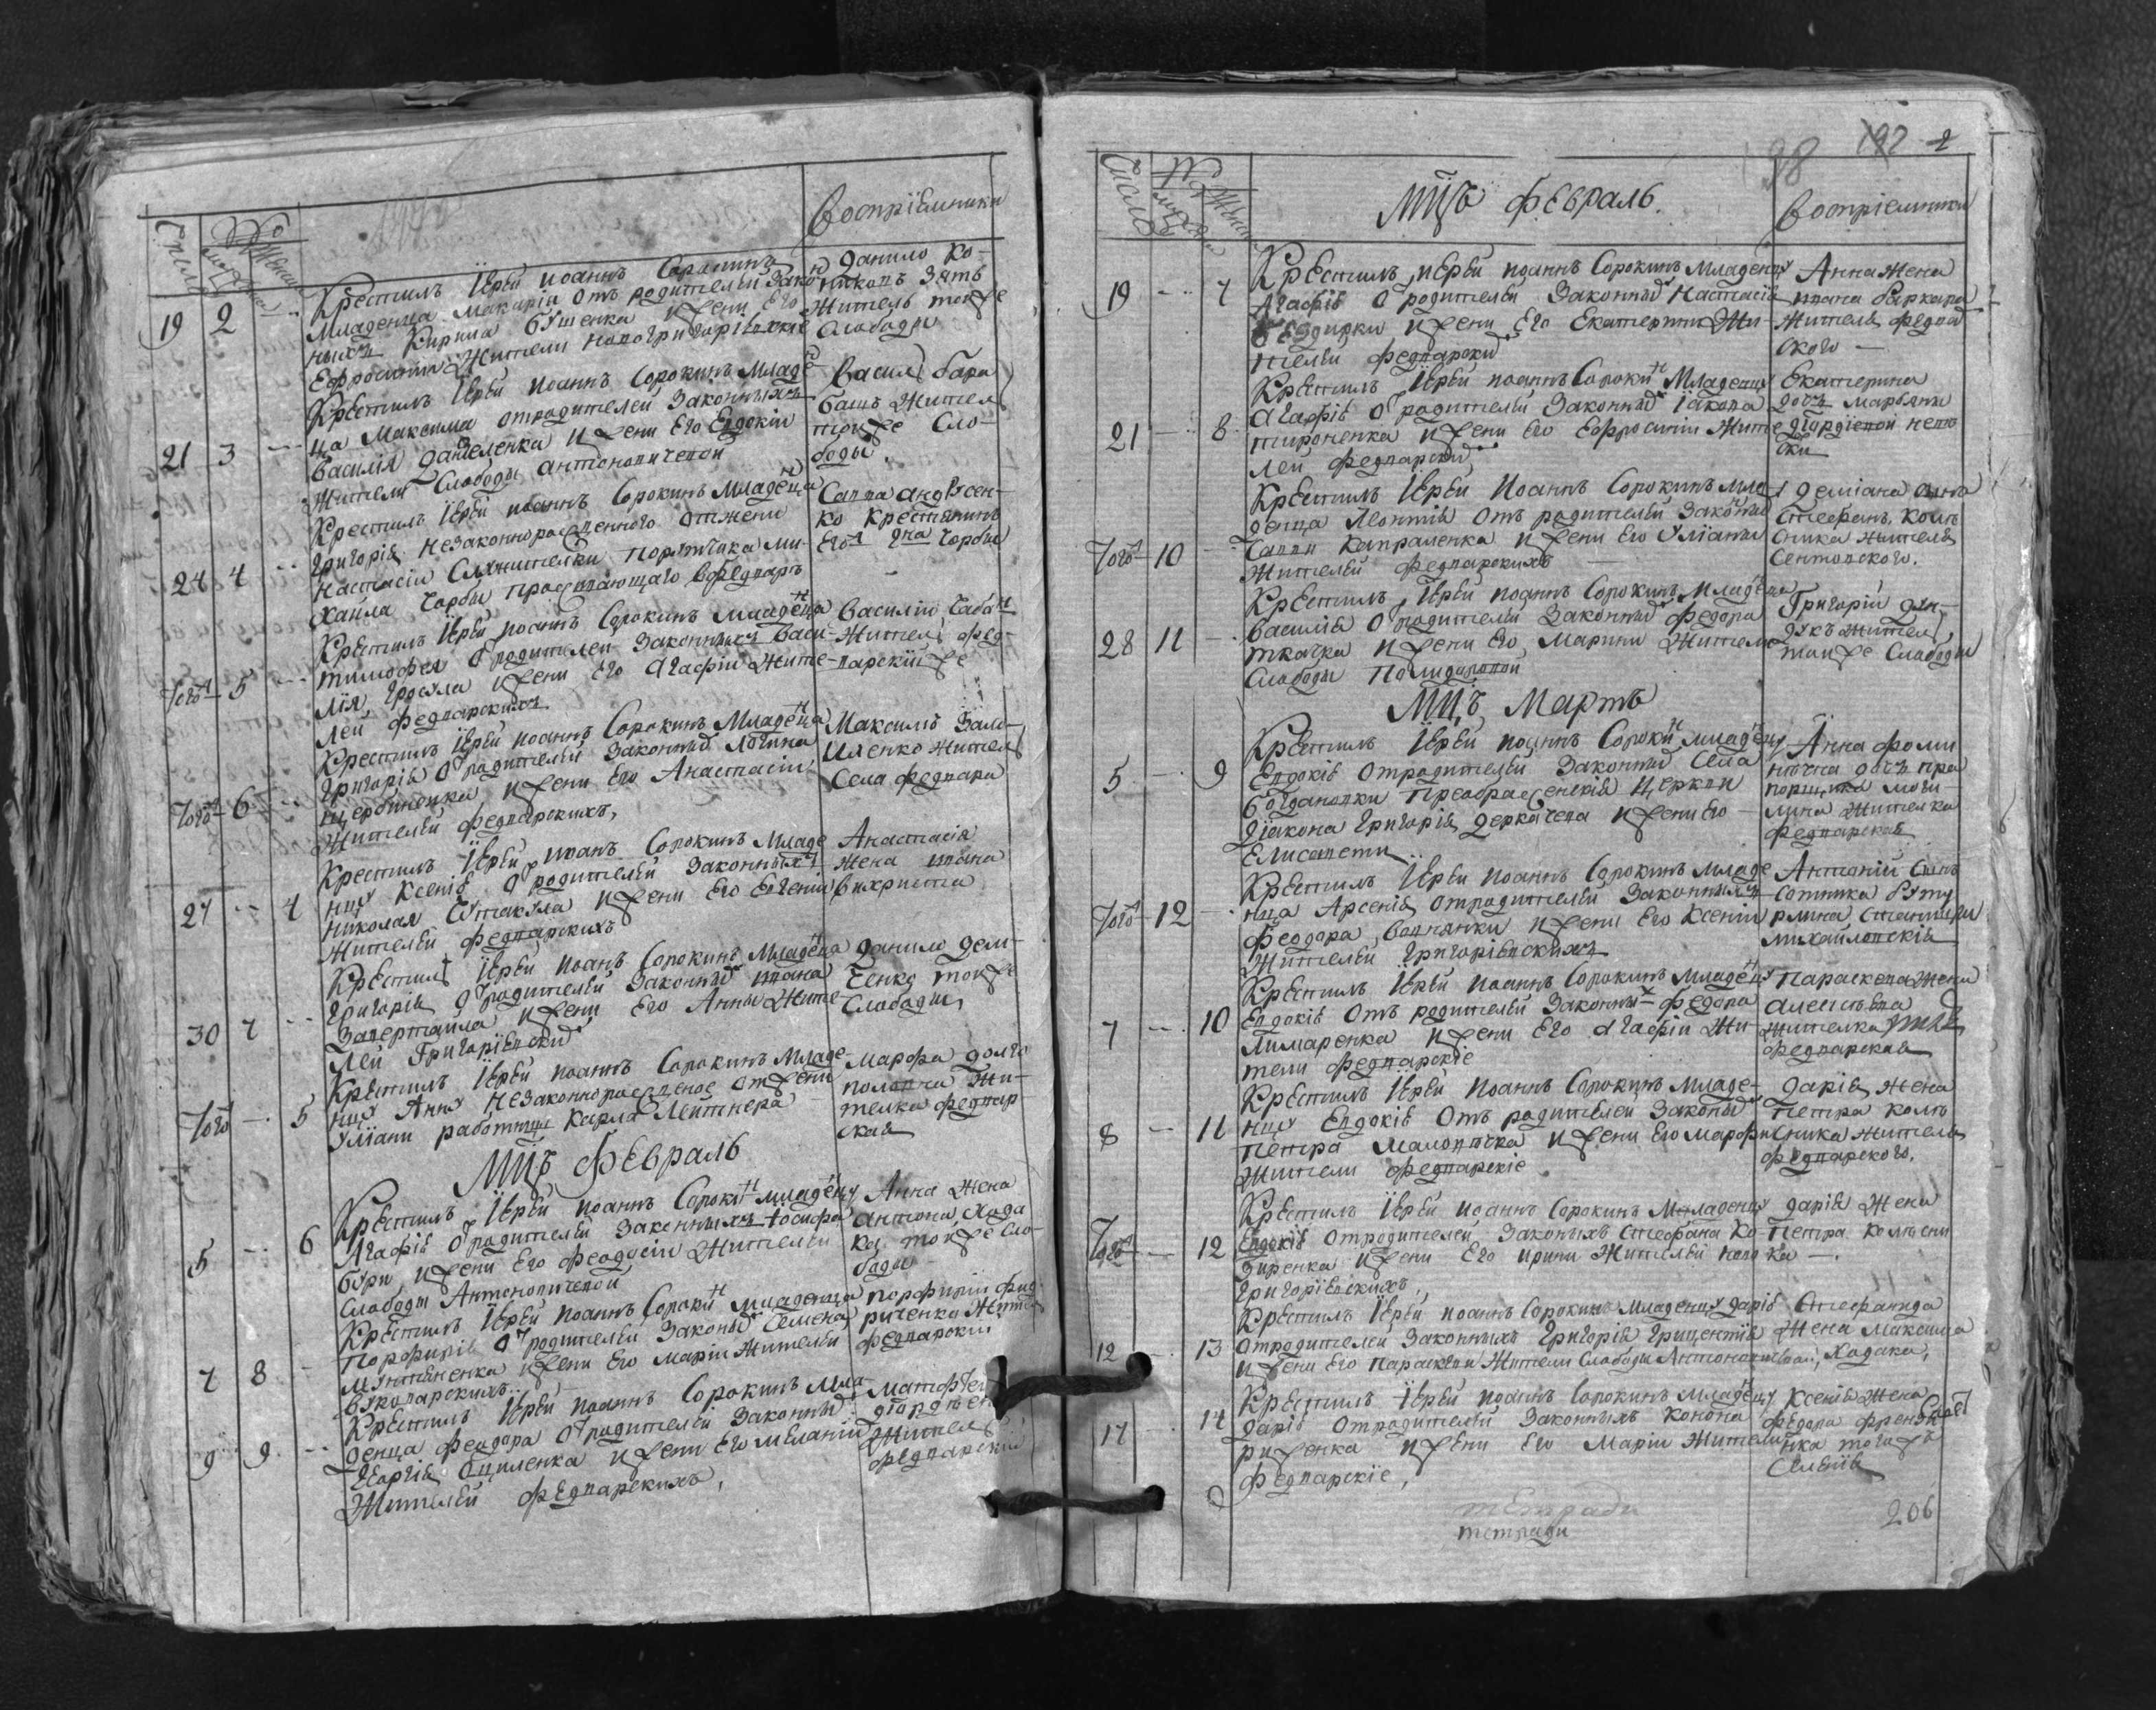 Число
№
мужеска
женска
воспріемники
19 2
Крестилъ Іерей Иоаннъ Сорокинъ
Младенца Макарія Отъ родителей Закон
ныхъ Кирила бушенка и жени Его
Ефросиніи Жители новогригоріевскіе
Данило Ко-
Зять
Житель тоиже
Слободы
21 3
Крестилъ Іерей Иоаннъ Сорокинъ Младен
ца Максима отродителей Законныхъ
Василія Даниленка и жени Его Евдокіи
Жители Слободы Антоновичевой
Васили бара
башъ Жител
тоиже Сло-
боды.
24 4
Крестилъ Іерей иоаннъ Сорокинъ Младенца
Григорія незаконнорожденного отжени
Настасіи Служителки Поручика Ми-
хаила Чорбы проживающаго вФедварѣ
Савва Андрѣен-
ко Крестянинъ
Его Гдна Чорбы
Того 5
Крестилъ Іерей иоаннъ Сорокинъ Младенца
Тимофея Отродителей Законныхъ Васи-
лія Гросула и жени Его Агафіи Жите-
лей Федварскихъ
Василій Чабан
Жител Фед-
варскій же
Того 6
Крестилъ Іерей Иоаннъ Сорокинъ Младенца
Григорія Отродителей Законныхъ Логина
Щербиненка и жени Его Анастасіи
Жителей Федварскихъ,
Максимъ Зало-
Иленко Жител
Села Федвара
27 4
Крестилъ Іерей иоанъ Сорокинъ Младе
нцу Ксенію Отродителей Законныхъ
Николая Сутакула и жени Его Евгеніи
Жителей Федварскихъ
Анастасія
Жена ивана
вихриста
30 7
Крестилъ Іерей Иоанъ Сорокинъ Младенца
Григорія Отродителей Законныхъ ивана
Завертаила и жени Его Анны Жите-
лей Григоріевскихъ
Данило Дем-
ченко тоиже
Слободы,
Того 5
Крестилъ Іерей иоаннъ Сорокинъ Младе-
нцу Анну Незаконнорожденное отжени
Уліани работници Карла Лейтнера
Марфа Долго
половна Жи-
телка Федвар
ская
Мцъ Февраль
5 6
Крестилъ Іерей иоаннъ Сорокинъ младенцу
Агафію Отродителей Законныхъ Іосифа
бури, и жени Его Феодосіи Жителей
Слободы Антоновичевой
Анна Жена
Антона Хода
ка, тойже Сло-
боды
7 8
Крестилъ Іерей иоаннъ Сорокинъ младенца
Порфирія Отродителей Законныхъ Семена
Мунтяненка и жени Его Маріи Жителей
Букварскихъ.
порфирій Фид
риченко Жител
Федварскій
9 9
Крестилъ Іерей иоаннъ Сорокинъ Мла-
денца Феодора Отродителей Законныхъ
Георгія Оциленка и жени Его Меланіи
Жителей Федварскихъ,
Матфѣй
Гардѣен
Жител
Федварскій
198 192 2
Число
№
мужеска
женска
Мцъ Февраль.
воспріемники
19 7
Крестилъ Іерей иоаннъ Сорокинъ Младенцу
Агафію Отродителей Законныхъ Настасіи
бездирки и жени Его Екатерини Жи-
телей Федварскихъ
Анна жена
ивана баркара
жителя Федва
ского
21 8
Крестилъ Іерей иоаннъ Сорокинъ Младенцу
Агафію Отродителей Законныхъ Іакова
тироненка и жени Его Ефросиніи Жите
лей Федварскихъ
Екатерина
дочъ Марьяни
Гардіевой
Того 10
Крестилъ Іерей Иоаннъ Сорокинъ Мла
денца Леонтія Отъ родителей Законныхъ
Саввы Капраленка и жени Его Уліаны
Жителей Федварскихъ
Деміана Сынъ
Стефанъ, Колѣ
сника жителя
Сентовского.
28 11
Крестилъ Іерей иоаннъ Сорокинъ Младенца
Василія Отродителей Законныхъ Федора
ткачка и жени Его Марины Жители
Слободы Помидоровой
Григорій Дян-
дукъ жител
тойже Слободы
Мцъ Мартъ
5 9
Крестилъ Іерей иоаннъ Сорокинъ младенцу
Евдокію Отродителей Законныхъ Села
богдановки Преображенскія Церкви
Діакона Григорія Деркачева и жени Его
Елисавети
Анна Фоми
нична дочъ пра
порщика Моги-
лина Жителка
Федварская
Того 12
Крестилъ Іерей иоаннъ Сорокинъ Младе
нца Арсенія отродителей Законныхъ
Феодора Волчанки и жени Его Ксеніи
Жителей Григоріевскихъ
Антоній Сынъ
Сотника Буту
рлина станици
Михайловскія
7 10
Крестилъ Іерей Иоаннъ Сорокинъ младенцу
Евдокію Отъ родителей Законныхъ Федора
Лимаренка и жени Его Агафіи Жи
тели Федварскіе
Параскева Жена
Алексѣева
Жителка
Федварская
8 11
Крестилъ Іерей Иоаннъ Сорокинъ Младе-
нцу Евдокію Отъ родителей Законыхъ
Петра Маловичка и жени Его Марфи
Жители Федварскіе
Дарія жена
Петра Колѣ
сника жителя
Федварского.
Того 12
Крестилъ Іерей Иоаннъ Сорокинъ Младенцу
Евдокію Отродителей Законыхъ Стефана Ко
зиренка и жени Его ирини Жителей ново
Григоріевскихъ,
Дарія Жена
Петра Колѣсни
ка
12 13
Крестилъ Іерей иоаннъ Сорокинъ Младенцу Дарію
Отродителей Законныхъ Григорія Гриценти
и жени Его Параскеви Жители Слободы Антоновичевой,
Стефанида
Жена Максима
Ходака,
17 14
Крестилъ Іерей иоаннъ Сорокинъ младенцу
Дарію Отродителей Законныхъ Конона
риженка и жени Его Маріи Жители
Федварскіе,
Ксенія Жена
Федора
ка тогожъ
Селенія
тетради
тетради
206